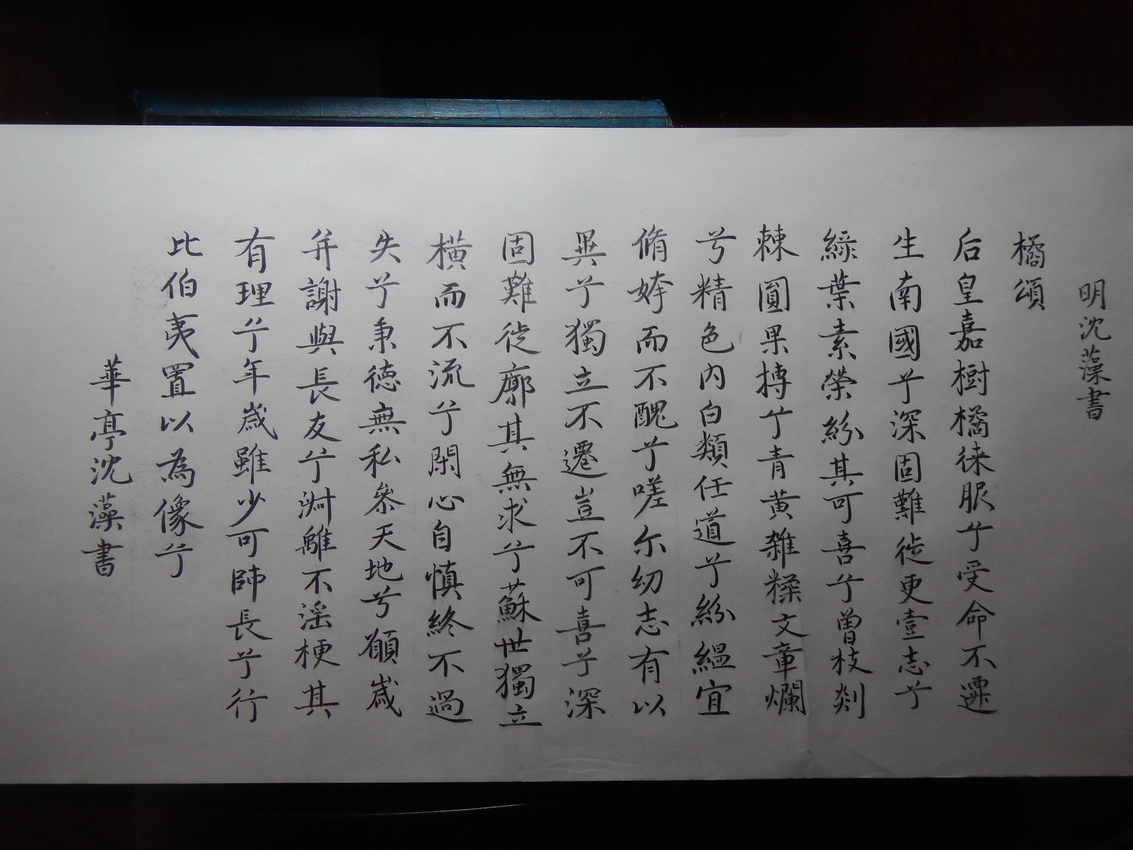 明沈藻書
橘頌
后皇嘉樹橘徠服兮受命不遷
生南國兮深固難徙更壹志兮
綠葉素榮紛其可喜兮曾枝剡
棘圓果摶兮青黄雜糅文章爛
兮精色内白類任道兮紛緼宜
脩姱而不醜兮嗟尔幼志有以
異兮獨立不遷豈不可喜兮深
固難徙廓其無求兮蘇世獨立
橫而不流兮閑心自慎終不過
失兮秉德無私參天地兮願歲
并謝與長友兮淑離不淫梗其
有理兮年歲雖少可師長兮行
比伯夷置以為像兮
華亭沈藻書